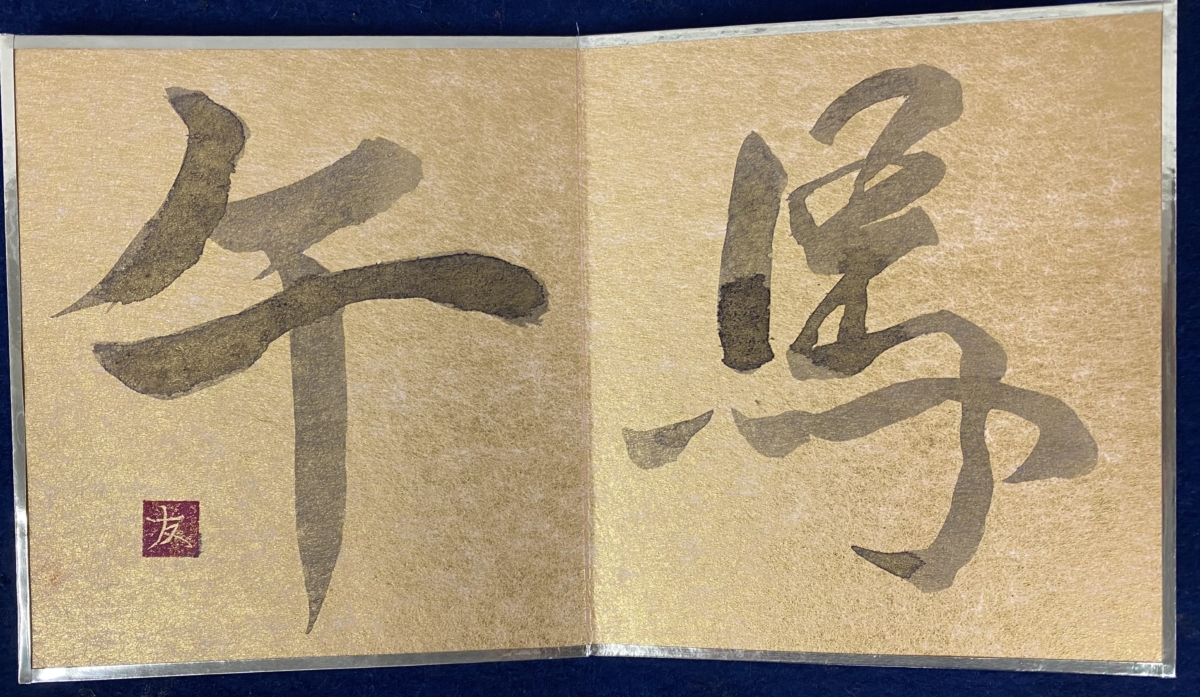 馬
午
友